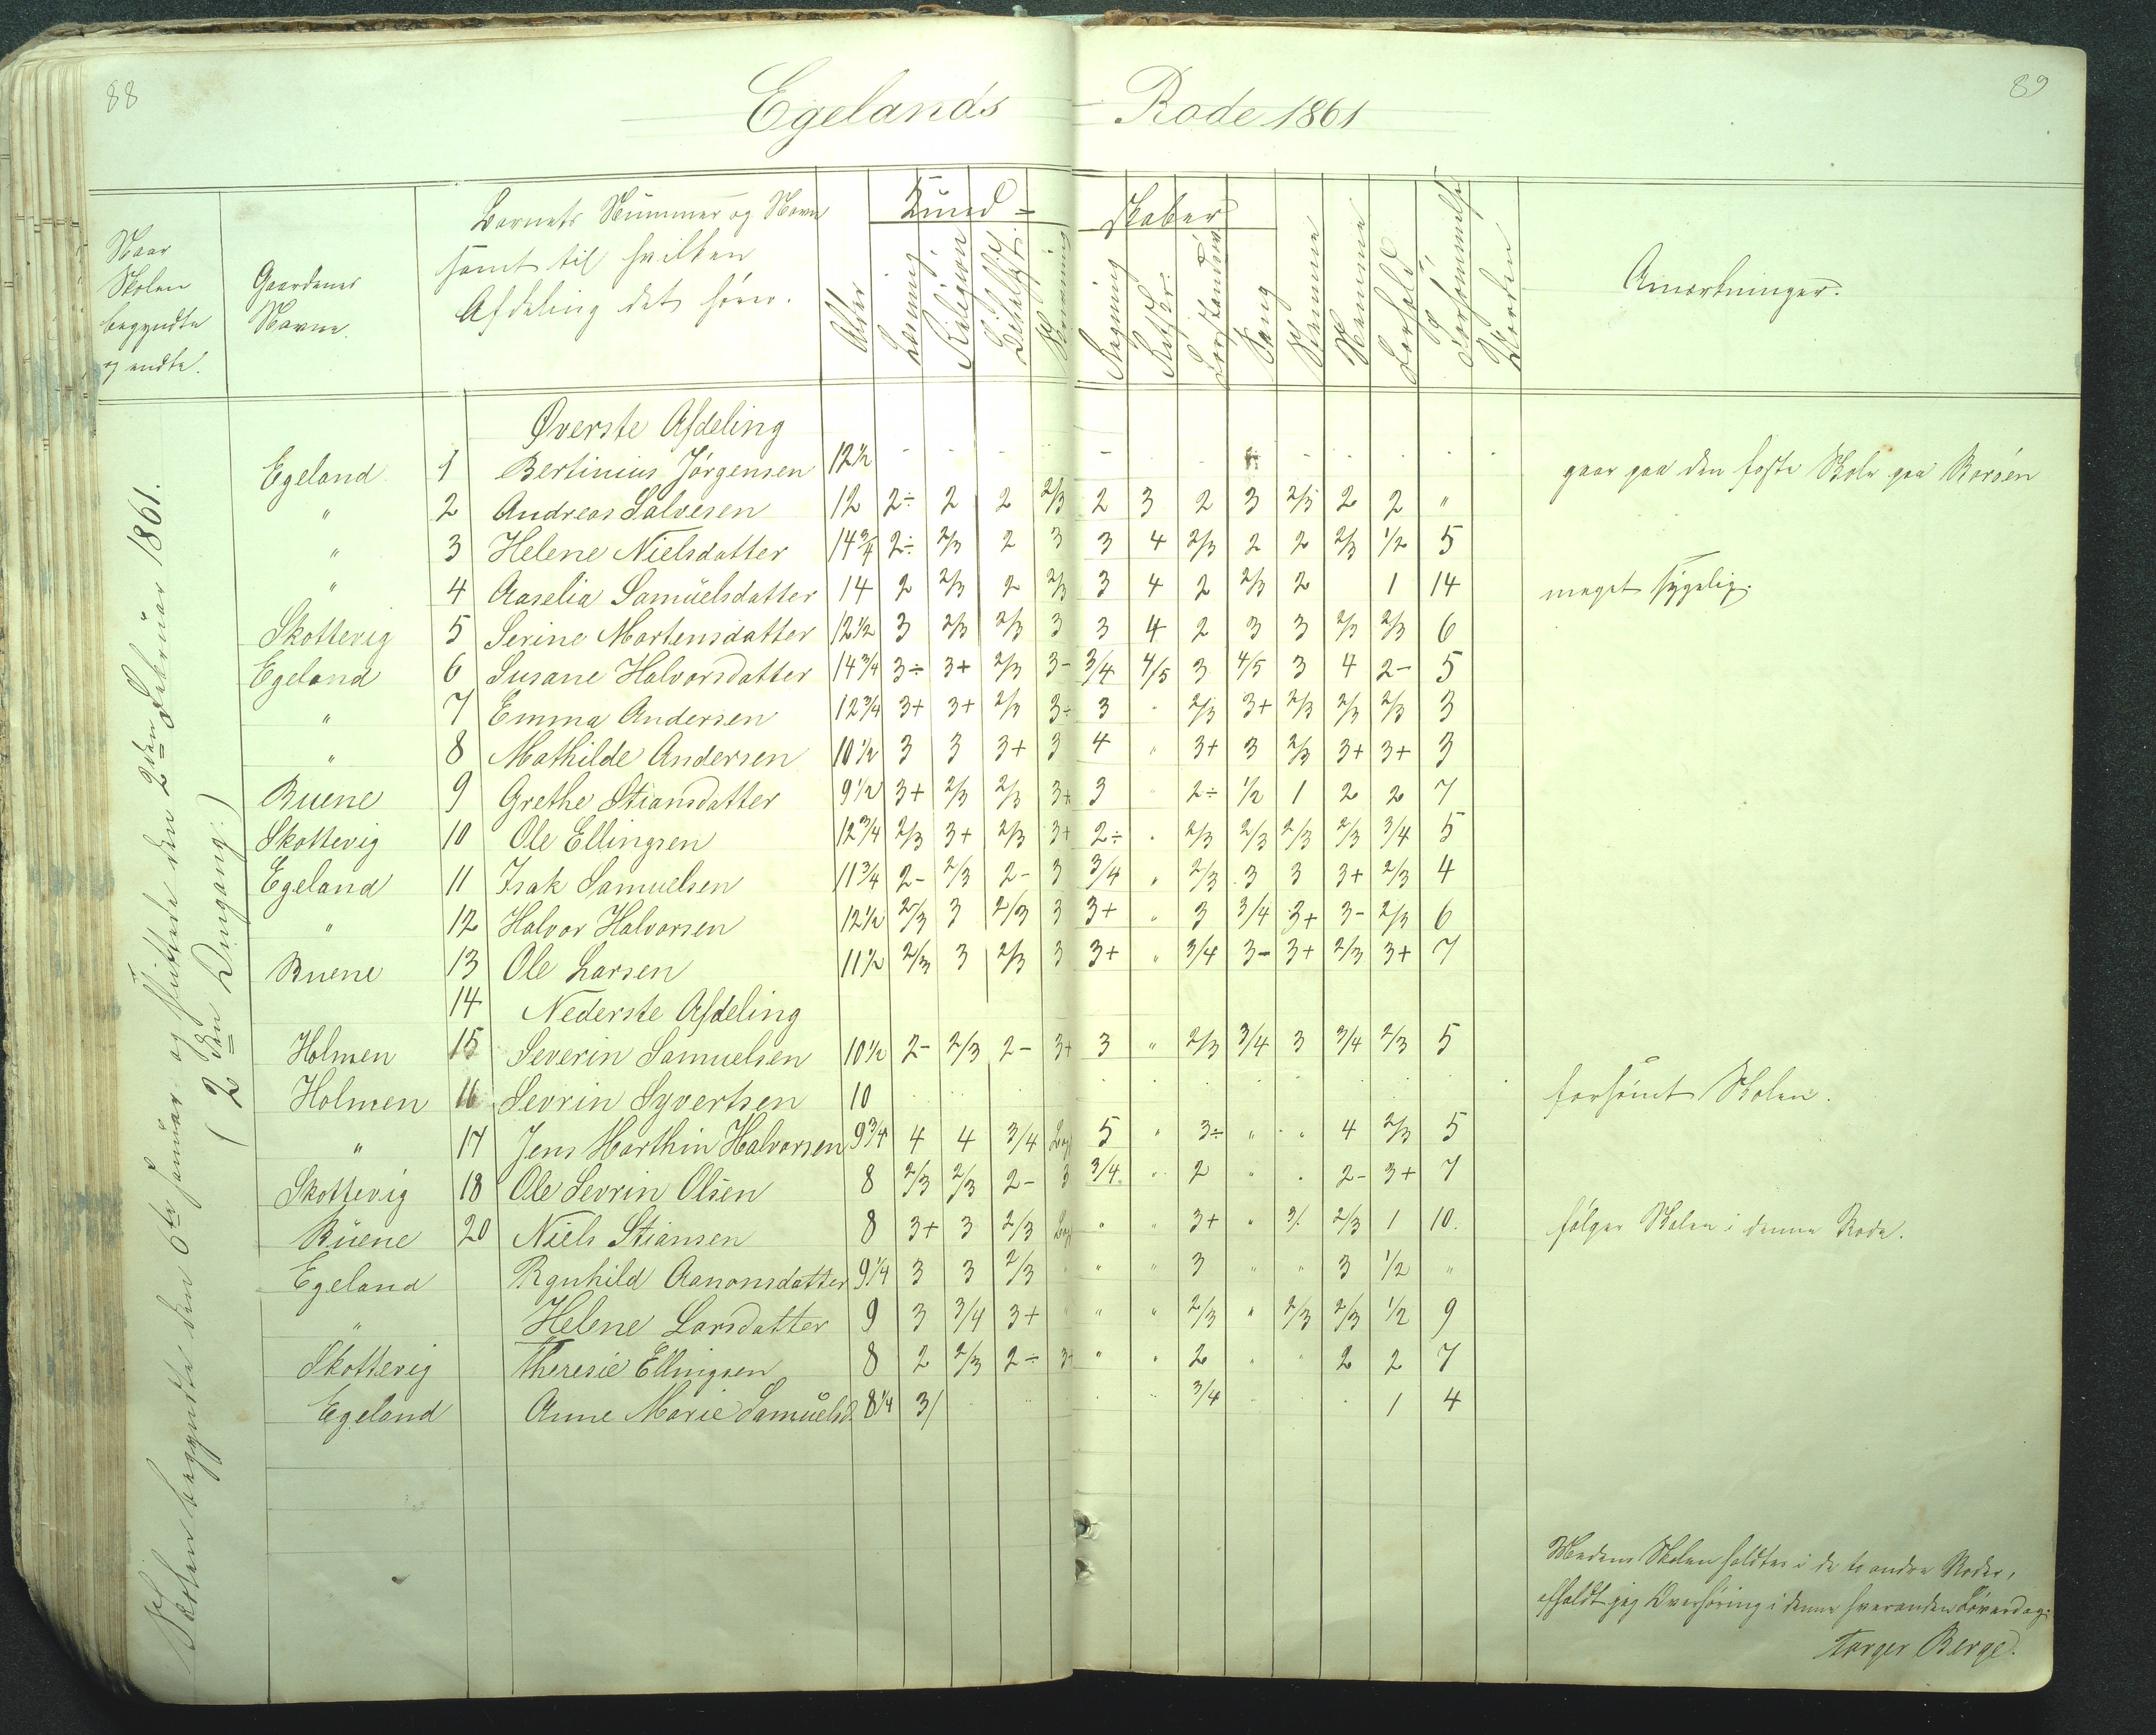 88
89
Egelands Rode 1861
Naar Skolen begyndte og endte.
Gaardenes Navne.
Barnets Nummer og Navn samt til hvilken Afdeling det hører.
Alder
Kund-skaber
Læsning
Religion
Bibelhist.
Skrivning
Regning
Forstandsøv
Sang
Nemme
Forhold
Forsømmelse
Anmærkninger.
Skolen begyndte den 6te Januar og sluttede den 2den Februar 1861.
(2den Omgang.)
Øverste Afdeling
Egeland 1 Bertinius Jørgensen 12½ gaar paa den faste Skole paa Borøen
" 2 Andreas Salvesen 12 2÷ 2 2 2/3 2 3 2 3 2/3 2 2 "
" 3 Helene Nielsdatter 14¾ 2÷ 2/3 2 3 3 4 2/3 2 2 2/3 1/2 5
" 4 Aaselia Samüelsdatter 14 2 2/3 2 2/3 3 4 2 2/3 2 1 14 meget sygelig.
Skottevig 5 Serine Mortensdatter 12½ 3 2/3 2/3 3 3 4 2 3 3 2/3 2/3 6
Egeland 6 Susane Halvorsdatter 14¾ 3÷ 3+ 2/3 3- 3/4 4/5 3 4/5 3 4 2- 5
" 7 Emma Andersen 12¾ 3+ 3+ 2/3 3÷ 3 " 2/3 3+ 2/3 2/3 2/3 3
" 8 Mathilde Andersen 10½ 3 3 3+ 3 4 " 3+ 3 2/3 3+ 3+ 3
Buene 9 Grethe Stiansdatter 9½ 3+ 2/3 2/3 3+ 3 " 2÷ 1/2 1 2 2 7
Skottevig 10 Ole Ellingsen 12¾ 2/3 3+ 2/3 3+ 2÷ " 2/3 2/3 2/3 2/3 3/4 5
Egeland 11 Isak Samuelsen 11¾ 2- 2/3 2- 3 3/4 " 2/3 3 3 3+ 2/3 4
" 12 Halvor Halvorsen 12½ 2/3 3 2/3 3 3+ " 3 3/4 3+ 3- 2/3 6
Buene 13 Ole Larsen 11½ 2/3 3 2/3 3 3+ " 3/4 3- 3+ 2/3 3+ 7
14 Nederste Afdeling
Holmen 15 Severin Samuelsen 10½ 2- 2/3 2- 3+ 3 " 2/3 3/4 3 3/4 2/3 5
Holmen 16 Sevrin Syvertsen 10 forsømt Skolen.
" 17 Jens Marthin Halvorsen 9¾ 4 4 3/4 Beg 5 " 3÷ " " 4 2/3 5
Skottevig 18 Ole Sevrin Olsen 8 2/3 2/3 2- 3 3/4 " 2 " " 2- 3+ 7
Büene 20 Niels Stiansen 8 3+ 3 2/3 Beg " " 3+ " 3/. 2/3 1 10. følger Skolen i denne Rode.
Egeland Rgnhild Aanonsdatter 9¼ 3 3 2/3 " " " 3 " " 3 1/2 "
" Helene Larsdatter 9 3 3/4 3+ " " " 2/3 " 2/3 2/3 1/2 9
Skottevig Theresie Ellingsen 8 2 2/3 2÷ 3+ " " 2 " " 2 2 7
Egeland Anne Marie Samüelsd. 8¼ 3/ 3/4 1 4
Medens Skolen holdtes i de to andre Roder,
afholdt jeg Overhøring i denne hveranden Løverdag.
Targer Berge.